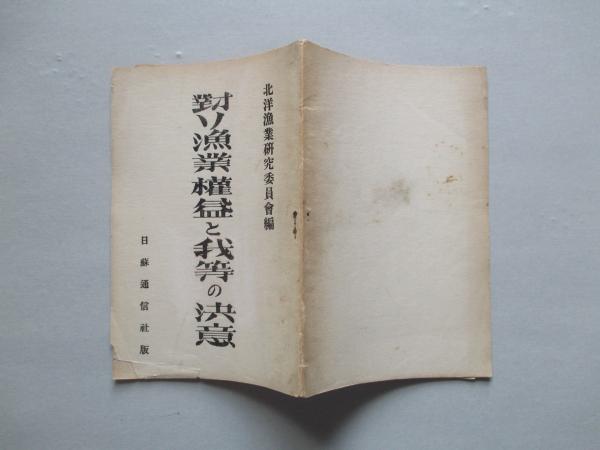 北洋漁業硏究委員會編
對ソ漁業權益と我等の決意
日蘇通信社版